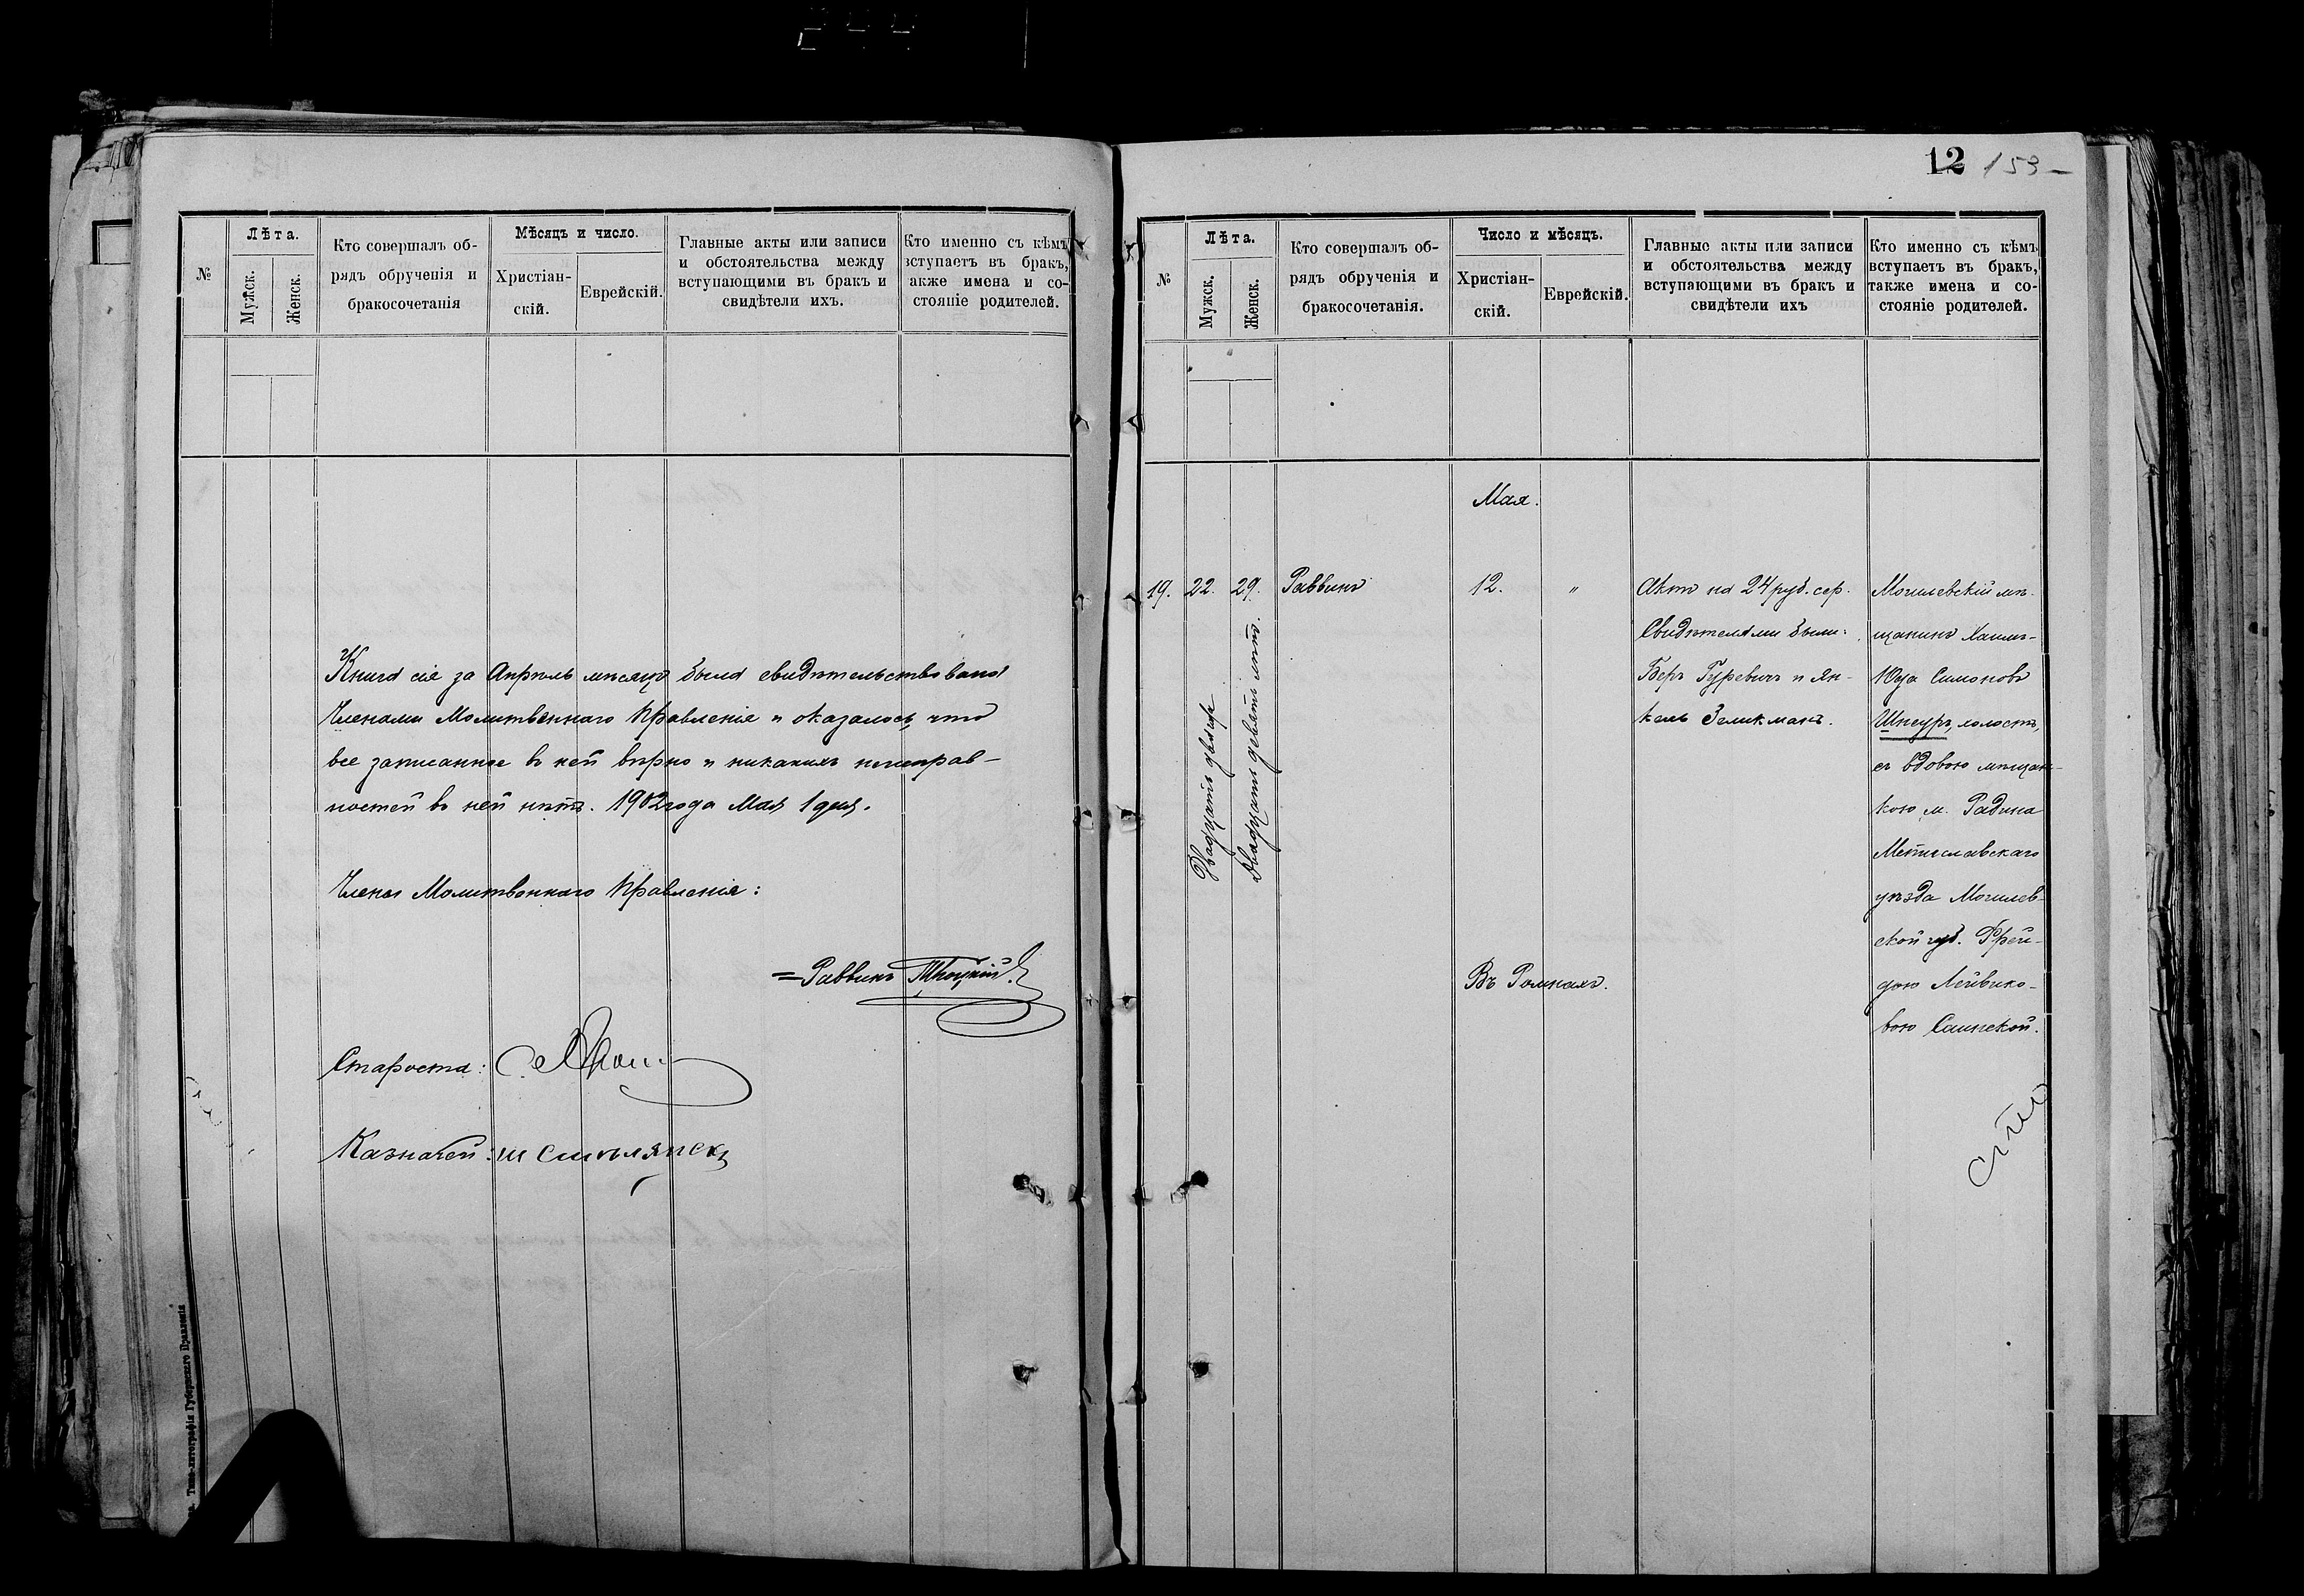 №
Лѣта.
Мужск.
Женск.
Кто совершалъ об-
рядъ обрученія и
бракосочетанія
Мѣсяцъ и число.
Христіан-
скій.
Еврейскій.
Главные акты или записи
и обстоятельства между
вступающими въ бракъ и
свидѣтели ихъ.
Кто именно съ кѣмъ
вступаетъ въ бракъ,
также имена и со-
стояніе родителей.
Книга сія за Апрѣль мѣсяцъ была свидѣтельствована
Членами Молитвеннаго Правленія и оказалось, что
все записанное въ ней вѣрно и никакихъ неисправ-
ностей въ ней нѣтъ. 1902 года Мая 1 дня.
Члены Молитвеннаго Правленія:
Раввинъ
Староста:
Казначей: Ш
Типо-литографія Губернскаго Правленія
12 153
№
Лѣта.
Мужск.
Женск.
Кто совершалъ об-
рядъ обрученія и
бракосочетанія.
Число и мѣсяцъ.
Христіан-
скій.
Еврейскій.
Главные акты или записи
и обстоятельства между
вступающими въ бракъ и
свидѣтели ихъ
Кто именно съ кѣмъ
вступаетъ въ бракъ,
также имена и со-
стояніе родителей.
Мая.
19.
22.
Двадцать два года
29.
Двадцать девять лѣтъ.
Раввинъ
12.
"
Въ Ромнахъ.
Актъ на 24 руб. сер.
Свидѣтелями были:
Беръ Гуревичъ и Ян-
кель Зеликманъ.
Могилевскій мѣ-
щанинъ Хаимъ-
Юда Симоновъ
Шнеуръ, холостъ,
съ вдовою мѣщан-
кою м. Радина
Мстиславскаго
уѣзда Могилев-
ской губ. Фрей-
дою Лейвико-
вою Саинской.